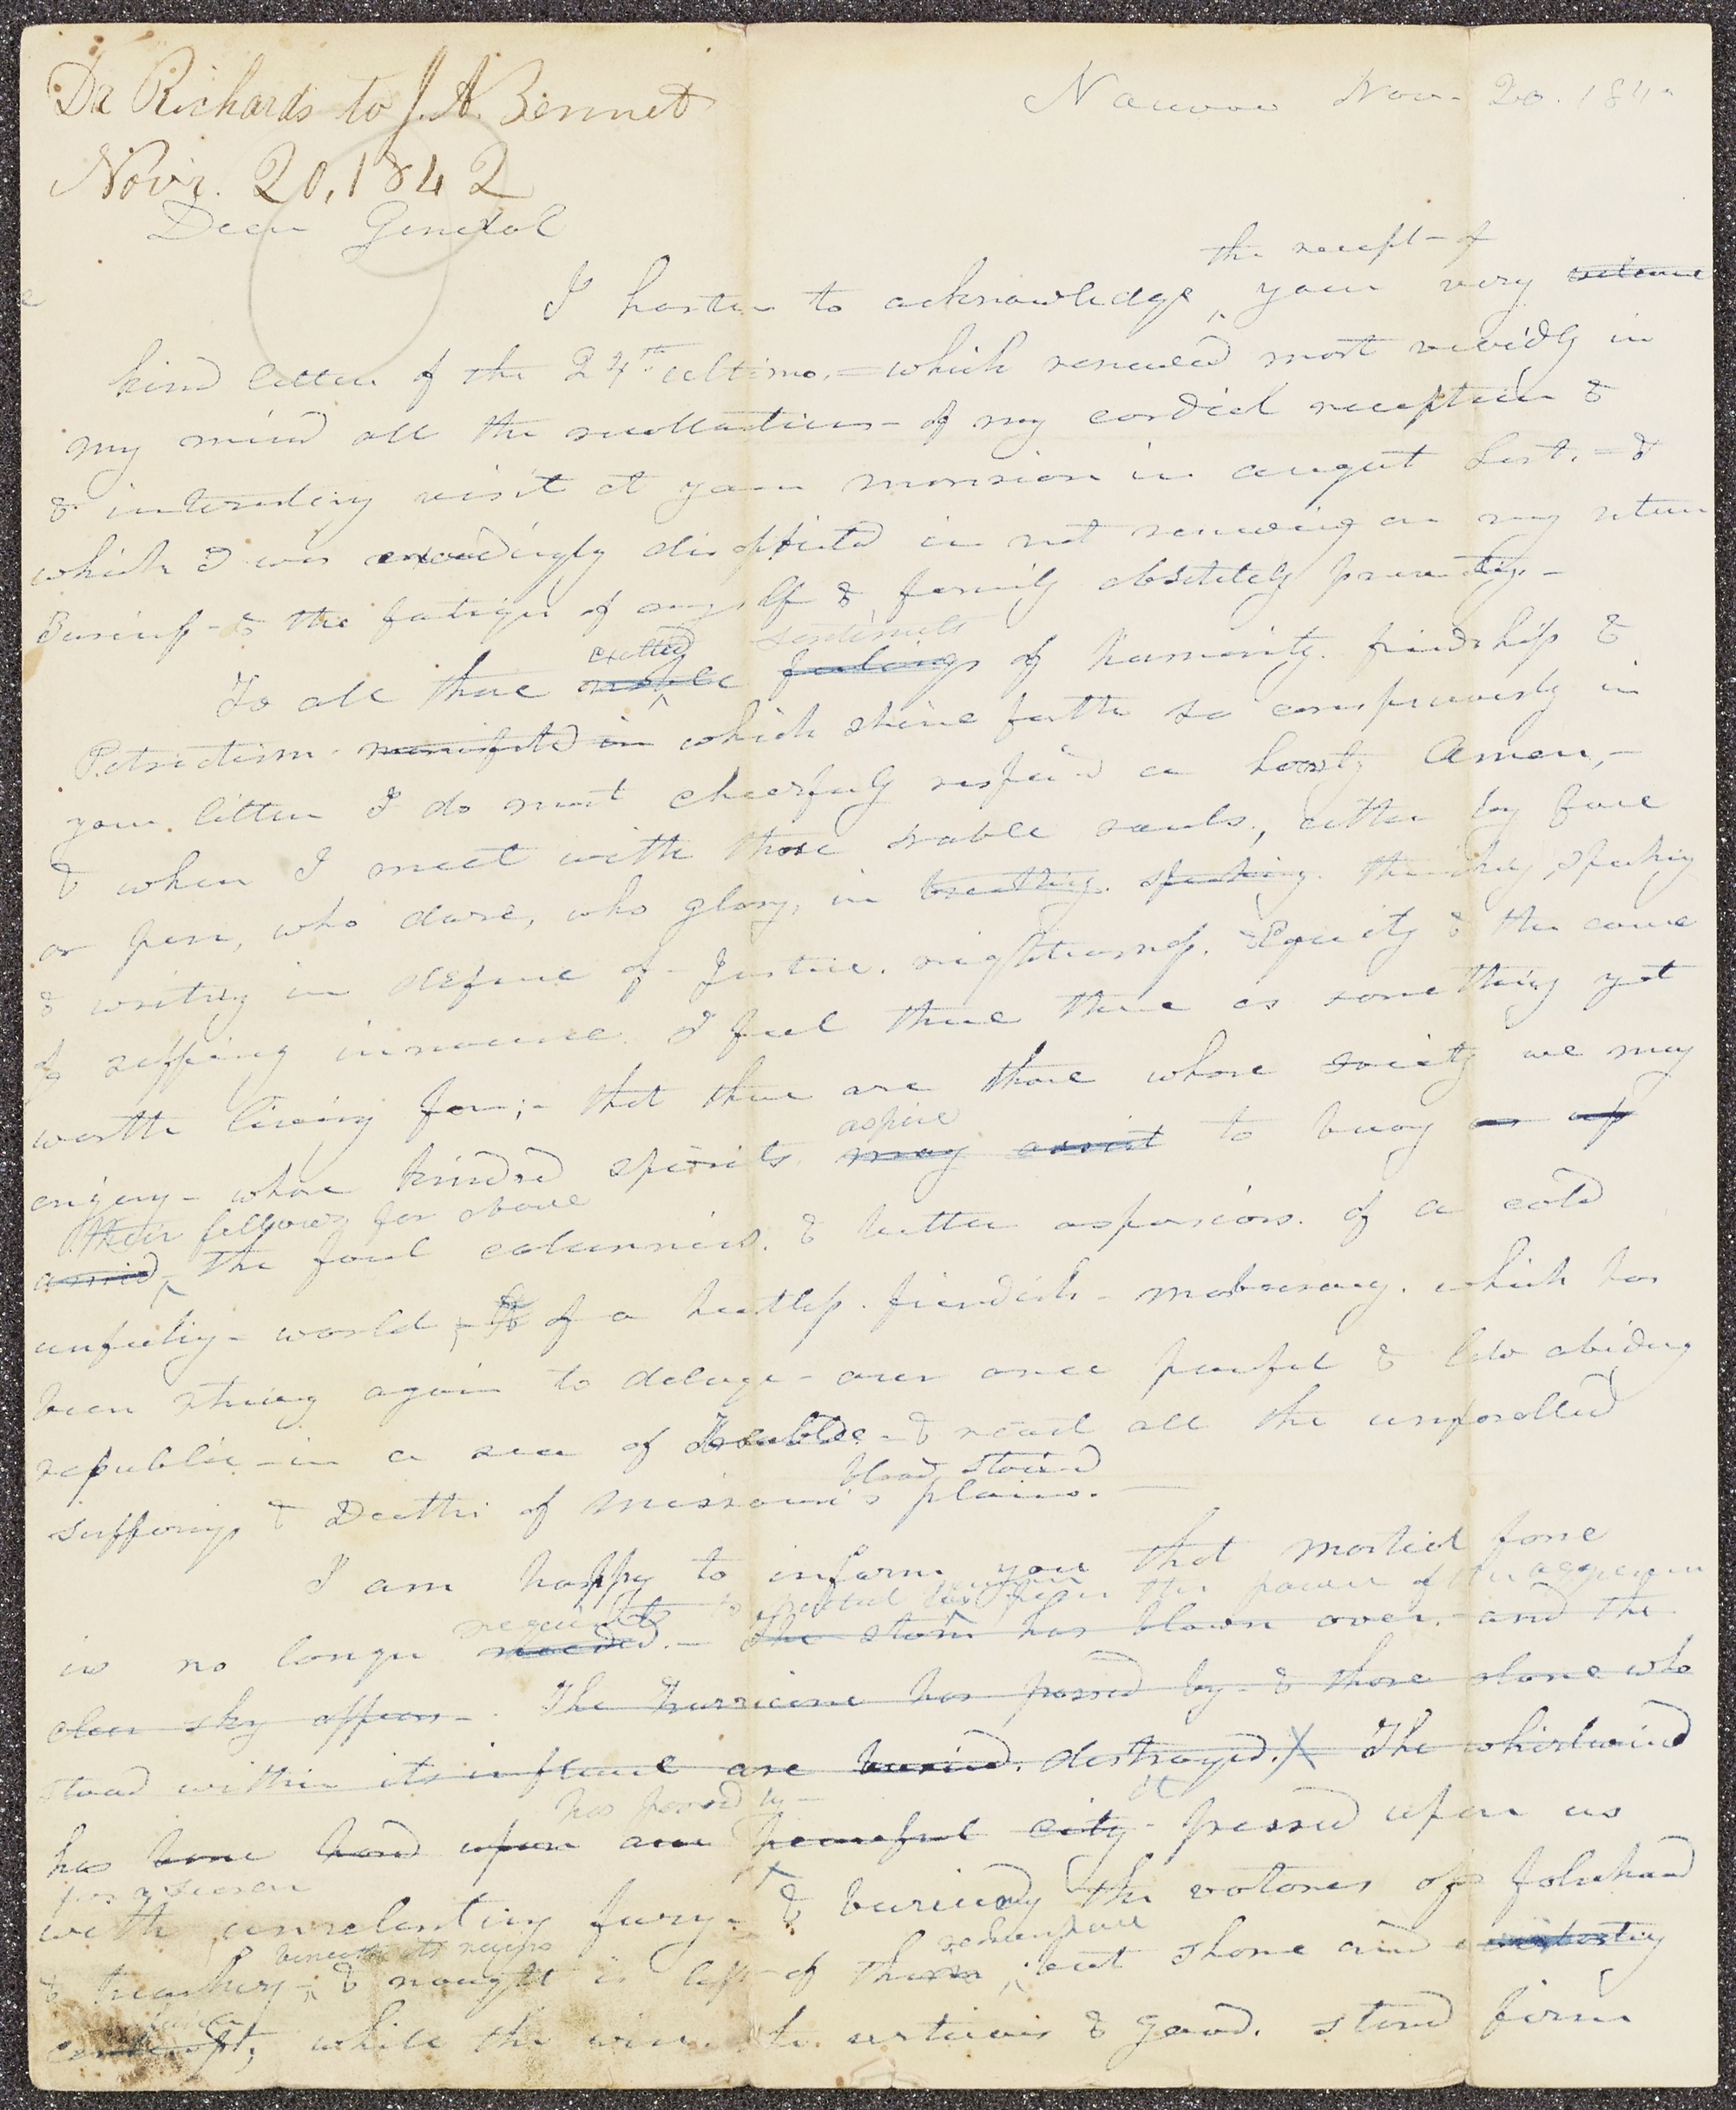 Dr Richards to J. A. Bennet
Novr. 20, 1842
Nauvoo Nov- 20. 184
Dear General
the receipt- of
I hasten to acknowledge ^ your very
kind letter of the 24th ultimo,- which renewed most vividly in
my mind all the recollections- of my cordial reception &
& interesting visit at your mansion in august last.- &
which I was exceedingly disappointed in not renewing on my return
Business- & the fatigue of myself & family absolutely preventing.-
exalted sentiments
To all those noble ^ feelings of humanity. friendship &
Patriotism- manifested in which shine forth so conspicuously in
your letter I do most cheerfully respond a hearty Amen,-
& when I meet with those noble souls, either by face
or pen, who dare, who glory, in breathing. speaking. thinking, speaking
& writing in defence of- Justice. righteousness. Equity & the cause
of suffering innocence. I feel there is something yet
worth living for;- that there are those whose society we may
aspire
enjoy- whose kindred spirits may assist to buoy us up
their fellows far above
amid ^ the foul calumnies. & bitter aspersions. of a cold
unfeeling- world, & of a heartless. fiendish- mobocracy. which has
been striving again to deluge- our once peaceful & law abiding
republic- in a sea of trouble- & react all the unparalled
blood stained
sufferings & Deaths of Missouri's plains.-
I am happy to inform you that martial force
the power of the aggressor
requisite
is no longer needed.- The storm has blown over.- and the
clear sky appears-. The hurricane has passed by- & those alone who
stood within its influence are buried. destroyed. X The whirlwind
has passed by- it
has bourne hard upon our peaceful city- passed upon us
for a season
with unrelenting fury- & buried the votaries of falsehood
beneath its ruins
& treachery- ^ & nought is left of them ^ but shame and
contempt, while the wise. the virtuous & good. stand firm